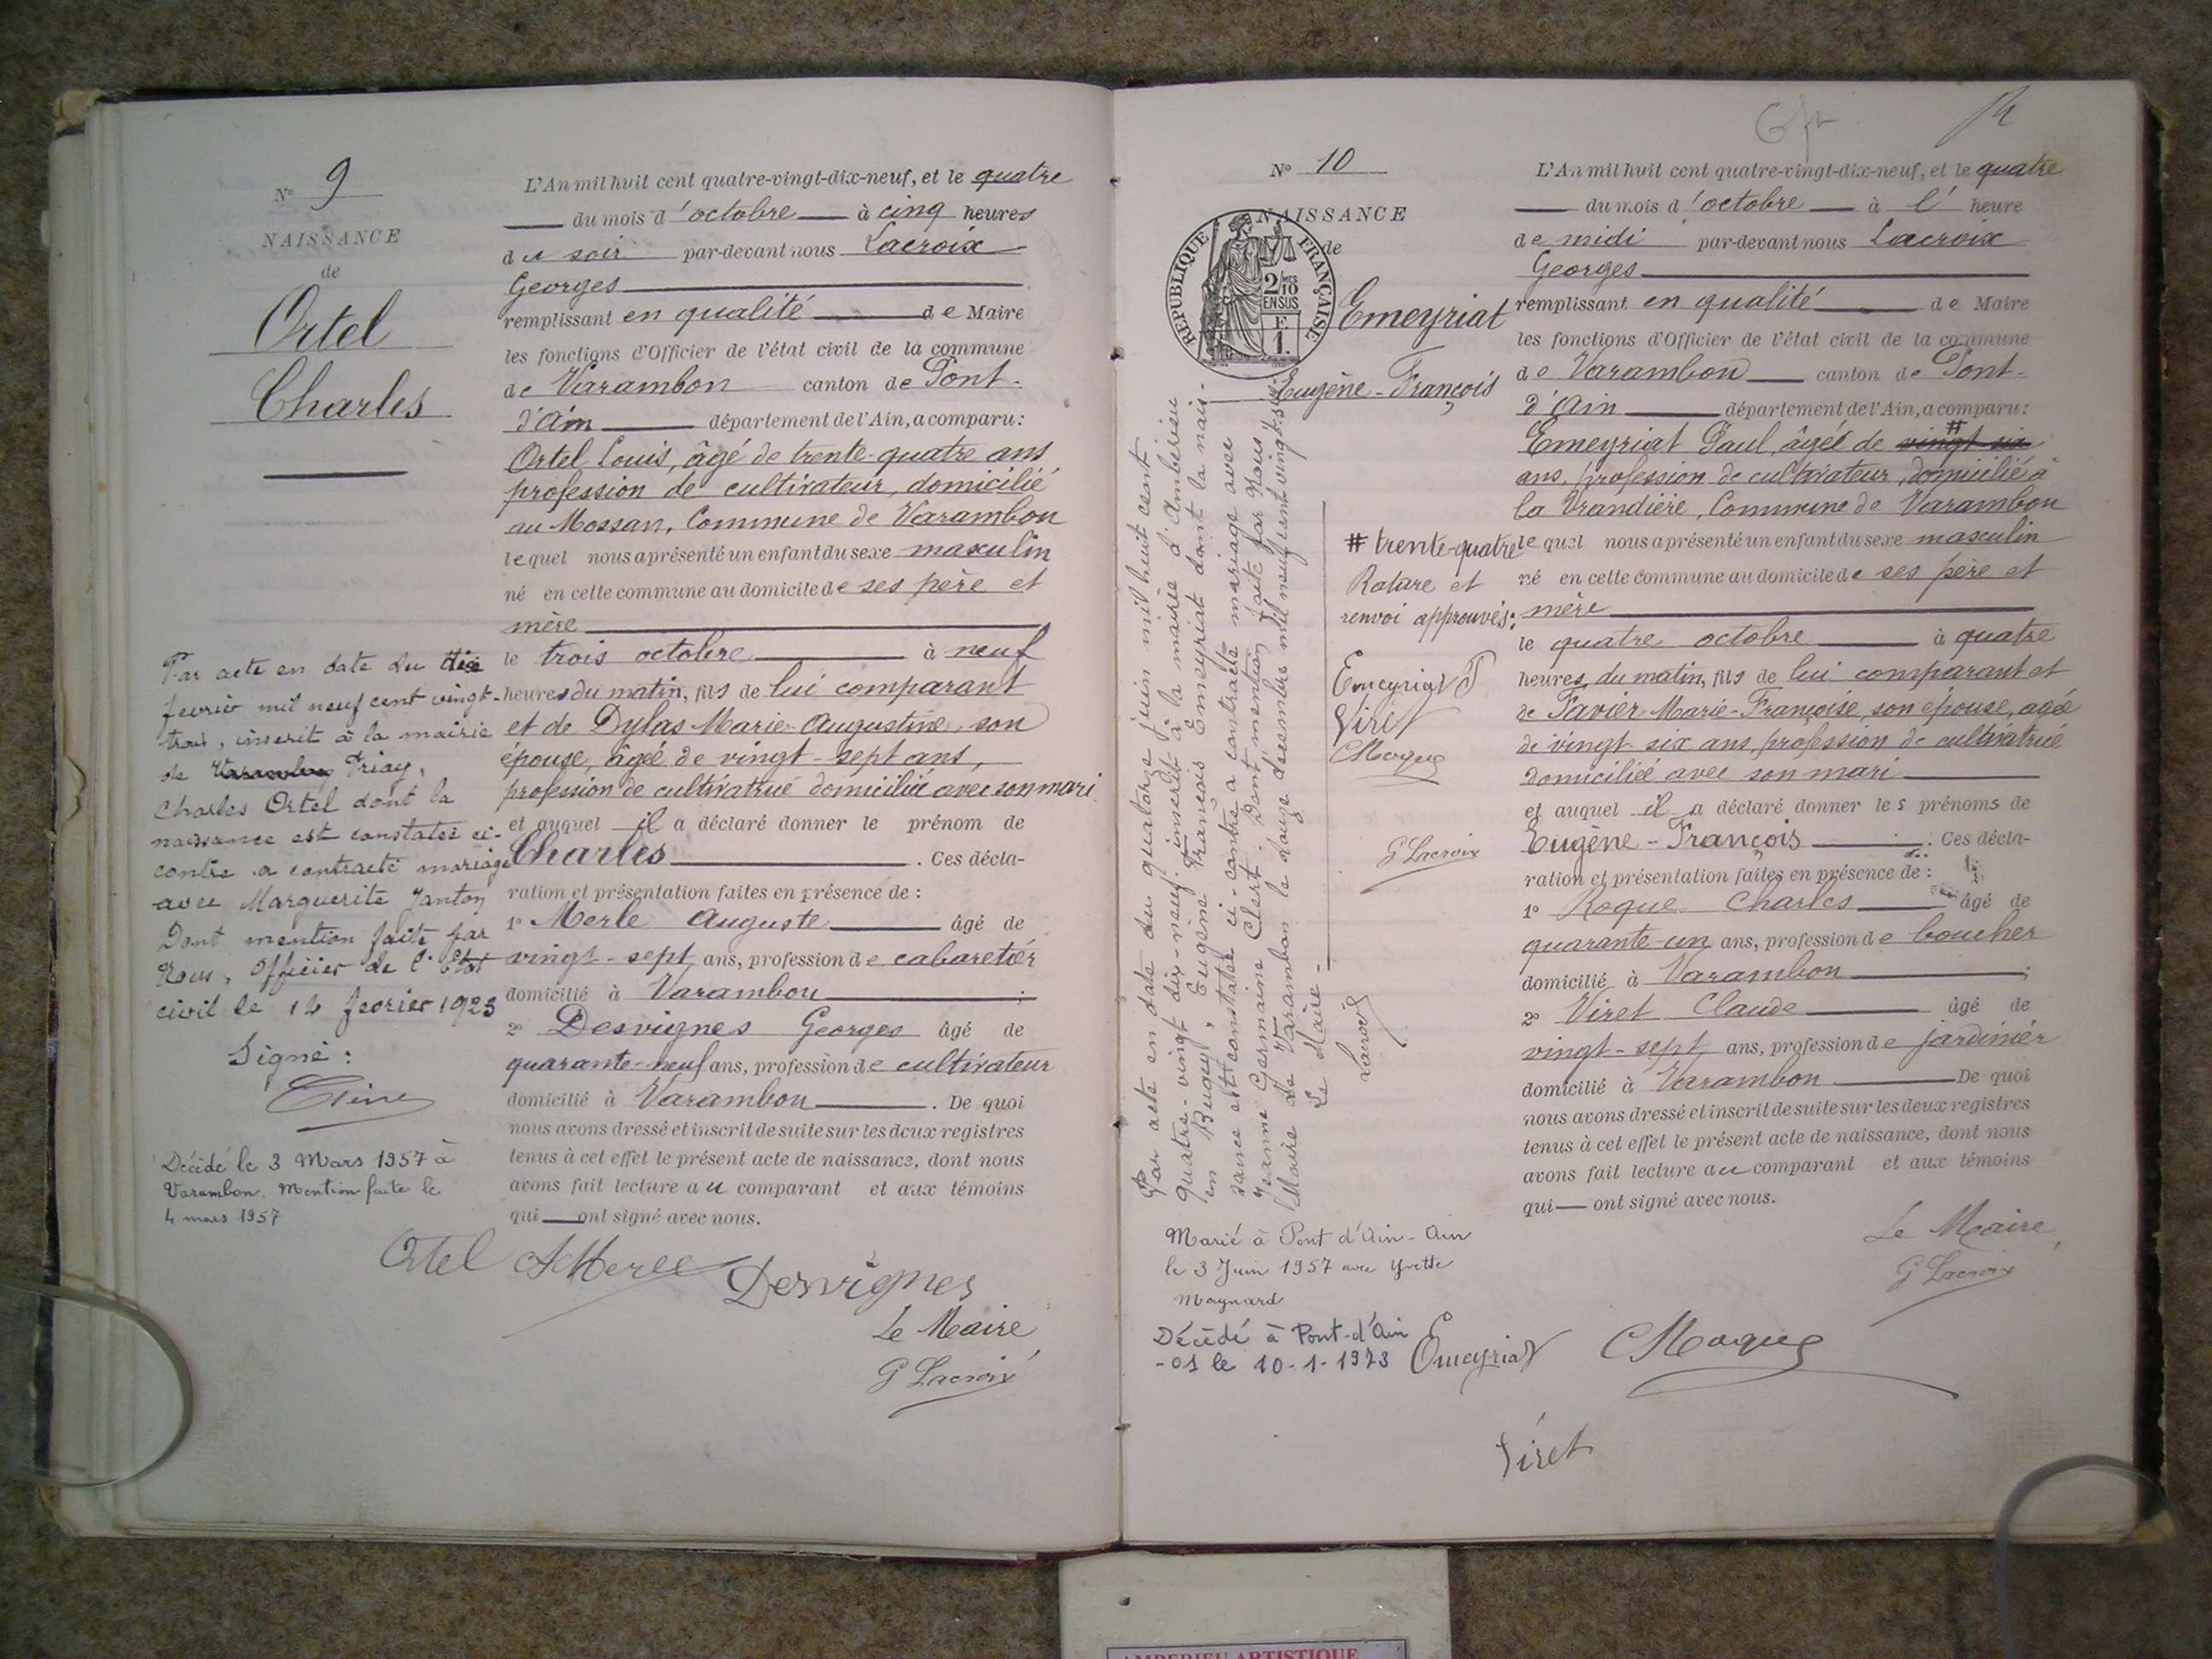 N° 9
NAISSANCE
de
Ortel
Charles
L'An mil huit cent quatre-vingt-dix-neuf, et le quatre
du mois d'octobre à cinq heures
du soir par-devant nous Lacroix
Georges
remplissant en qualité de Maire
les fonctions d'Officier de l'état civil de la commune
de Varambon canton de Pont-
d'Ain département de l'Ain, a comparu:
Ortel Louis, âgé de trente-quatre ans
profession de cultivateur, domicilié
au Mossan, Commune de Varambon
lequel nous a présenté un enfant du sexe masculin
né en cette commune au domicile de ses père et
mère
le trois octobre à neuf
heures du matin, fils de lui comparant
et de Dylas Marie-Augustine, son
épouse, âgée de vingt-sept ans,
profession de cultivatrice domiciliée avec son mari
et auquel il a déclaré donner le prénom de
Charles. Ces décla-
ration et présentation faites en présence de :
1° Merle Auguste âgé de
vingt-sept ans, profession de cabaretier
domicilié à Varambon ;
2° Desvignes Georges âgé de
quarante-neuf ans, profession de cultivateur
domicilié à Varambon. De quoi
nous avons dressé et inscrit de suite sur les deux registres
tenus à cet effet le présent acte de naissance, dont nous
avons fait lecture au comparant et aux témoins
qui ont signé avec nous.
Par acte en date du dix
fevrier mil neuf cent vingt-
trois, inscrit à la mairie
de Varambon Priay,
Charles Ortel dont la
naissance est constatée ci-
contre a contracté mariage
avec Marguerite Janton
Dont mention faite par
Nous, Officier de l'Etat
civil le 14 fevrier 1923
Signé :
Décédé le 3 Mars 1957 à
Varambon. Mention faite le
4 mars 1957
Ortel A Merle Desvignes
Le Maire,
G Lacroix
N° 10
NAISSANCE
de
REPUBLIQUE FRANÇAISE
2/10
EN SUS
F.
1.
Emeyriat
Eugène-François
L'An mil huit cent quatre-vingt-dix-neuf, et le quatre
du mois d'octobre à l' heure
de midi par-devant nous Lacroix
Georges
remplissant en qualité de Maire
les fonctions d'Officier de l'état civil de la commune
de Varambon canton de Pont-
d'Ain département de l'Ain, a comparu:
Emeyriat Paul, âgé de vingt six #
ans, profession de cultivateur, domicilié à
la Vrandière, Commune de Varambon
lequel nous a présenté un enfant du sexe masculin
né en cette commune au domicile de ses père et
mère
le quatre octobre à quatre
heures du matin, fils de lui comparant et
de Favier Marie-Françoise, son épouse, agée
de vingt-six ans, profession de cultivatrice
domiciliée avec son mari
et auquel il a déclaré donner les prénoms de
Eugène-François : Ces décla-
ration et présentation faites en présence de :
1° Roque Charles âgé de
quarante-un ans, profession de boucher
domicilié à Varambon ;
2° Viret Claude âgé de
vingt-sept ans, profession de jardinier
domicilié à Varambon De quoi
nous avons dressé et inscrit de suite sur les deux registres
tenus à cet effet le présent acte de naissance, dont nous
avons fait lecture au comparant et aux témoins
qui ont signé avec nous.
# trente-quatre
Rature et
renvoi approuvés:
Emeyriat P
Viret
C Roque
G Lacroix
Par acte en date du quatorze juin mil huit cent
quatre-vingt dix-neuf, inscrit à la mairie d'Ambérieu
en Bugey, Eugène François Emeyriat dont la nais-
sance est constatée ci-contre a contracté mariage avec
Jeanne Germaine Clert. Dont mention faite par Nous,
Maire de Varambon le douze décembre mil neuf cent vingt-six.
Le Maire -
Lacroix
Marié à Pont d'Ain - Ain
le 3 Juin 1957 avec Yvette
Maynard
Décédé à Pont-d'Ain
-01 le 10-1-1973
Le Maire,
G Lacroix
Emeyriat C Roque
Viret
AMBERIEU ARTISTIQUE